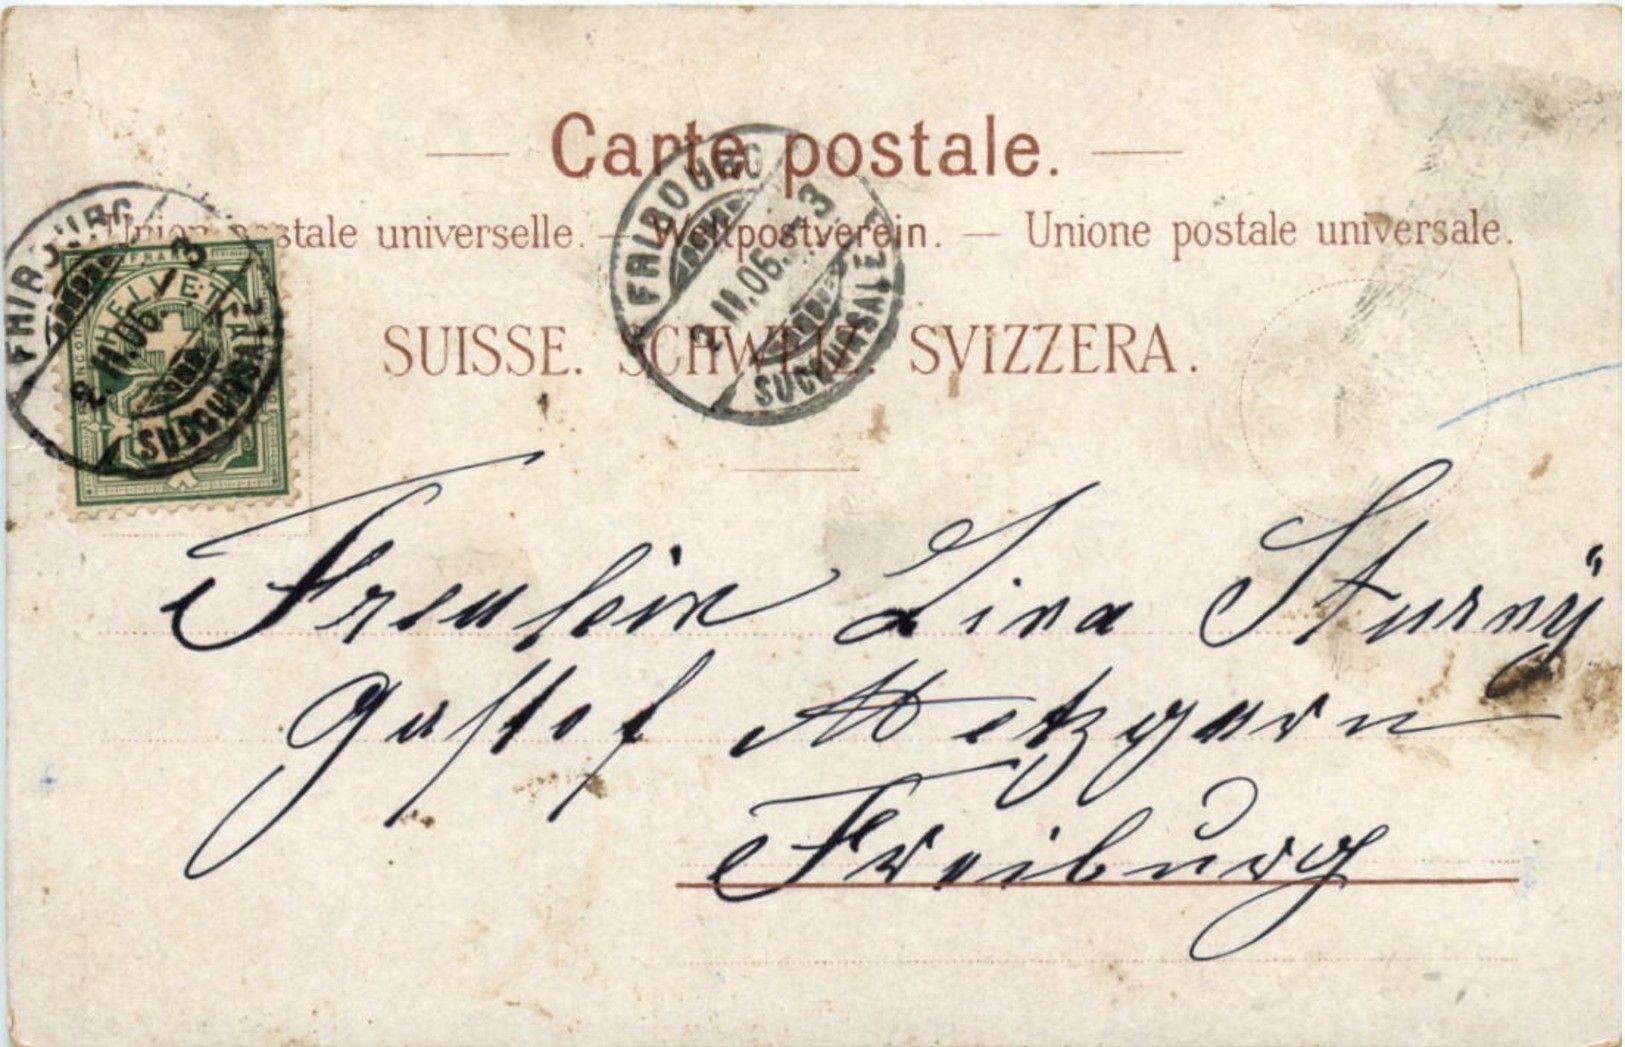 Carte postale.
Union postale universelle. — Weltpostverein. — Unione postale universale.
SUISSE. SCHWEIZ. SVIZZERA.
FRIBOURG
2 II.06. 3
SUCCURSALE
HELVETIA
FRIBOURG
2 II.06. 3
SUCCURSALE
Freulein Lina Sturnÿ
Gasthof Metzgern
Freiburg